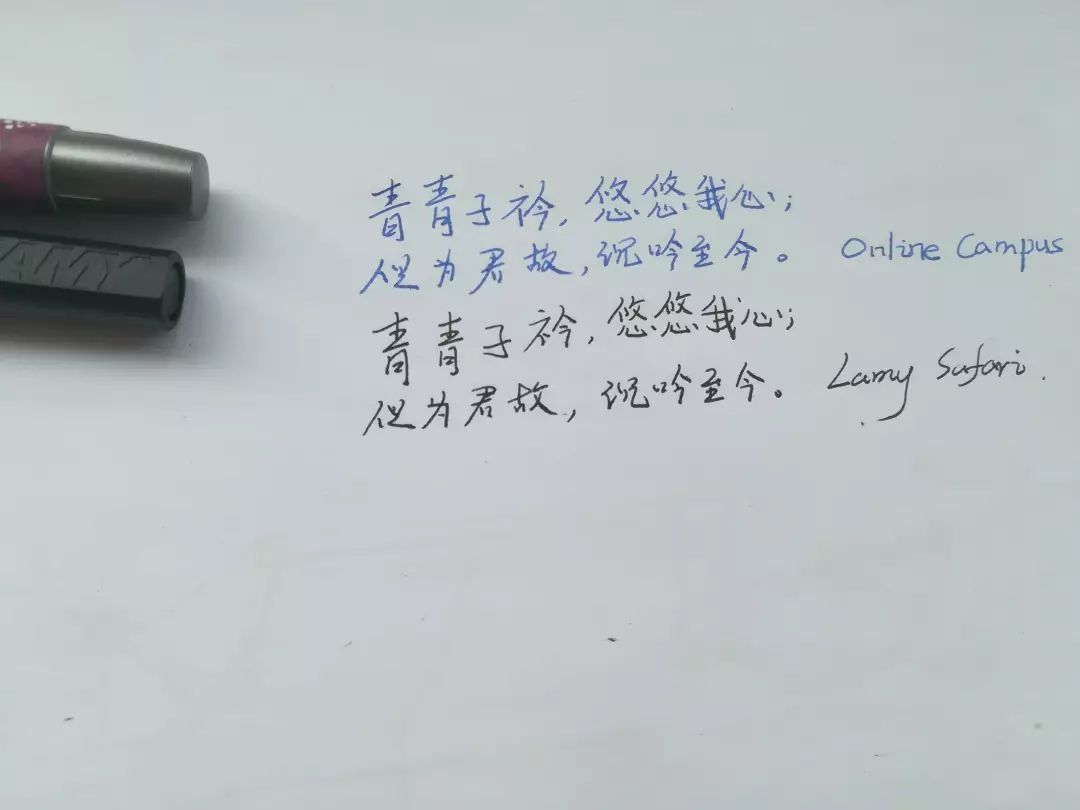 LAMY
青青子衿，悠悠我心；
但为君故，沉吟至今。 Online Campus
青青子衿，悠悠我心；
但为君故，沉吟至今。 Lamy Safari.